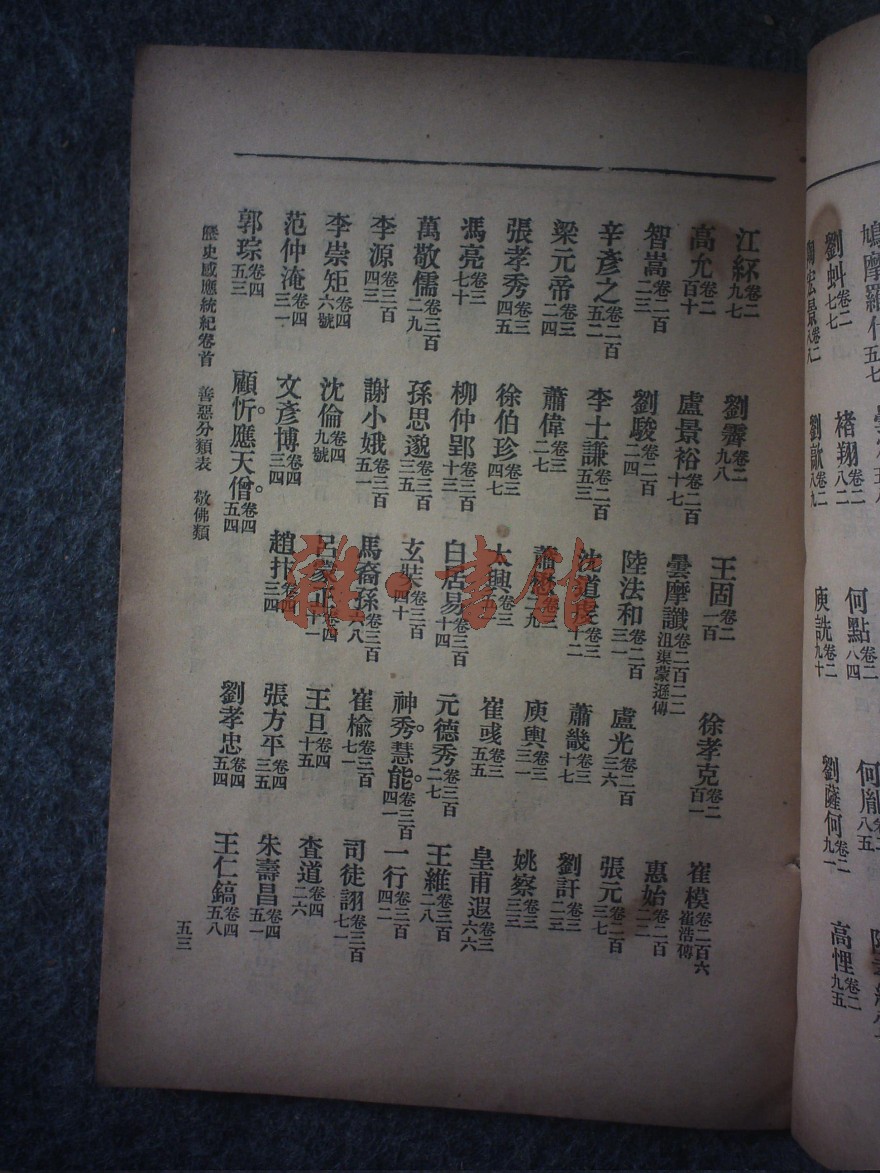 劉虯卷二七七 褚翔卷二八二 何點卷二八四 何胤卷二八五
劉歊卷二八九 庾詵卷二九十 劉薩何卷二九一 高悝卷二九五
江紑卷二九七 劉霽卷二九八 王固卷二一百 徐孝克卷二百一 崔模卷二百六崔浩傳
高允卷二百十 盧景裕卷二百十七 曇摩讖卷二百二二沮渠蒙遜傳 惠始卷二百二二
智嵩卷二百二三 劉駿卷二百二四 陸法和卷二百三一 盧光卷二百三六 張元卷二百三七
辛彥之卷二百五二 李士謙卷二百五三 沈道虔卷三十二 蕭畿卷三十七 劉訏卷三二三
梁元帝卷三二四 蕭偉卷三二七 蕭懋卷三二九 庾輿卷三三一 姚察卷三三三
張孝秀卷三四五 徐伯珍卷三四七 太興卷三五一 崔彧卷三五五 皇甫遐卷三六六
馮亮卷三七十 柳仲郢卷三百十三 白居易卷三百十四 元德秀卷三百二七 王維卷三百二八
萬敬儒卷三百二九 孫思邈卷三百三五 玄奘卷三百四十 神秀。慧能。卷三百四一 一行卷三百四二
李源卷三百四三 謝小娥卷三百五一 馬裔孫卷三百六八 崔榆卷三百七一 司徒詡卷三百七一
李崇矩卷四六號 沈倫卷四九號 呂蒙正卷四十一 王旦卷四十五 查道卷四二六
范仲淹卷四三一 文彥博卷四三四 趙抃卷四三四 張方平卷四三五 朱壽昌卷四五一
郭琮卷四五三 顧忻。應天僧。卷四五四 劉孝忠卷四五四 王仁鎬卷四五八
歷史感應統紀卷首 善惡分類表 敬佛類 五三
雜·書館